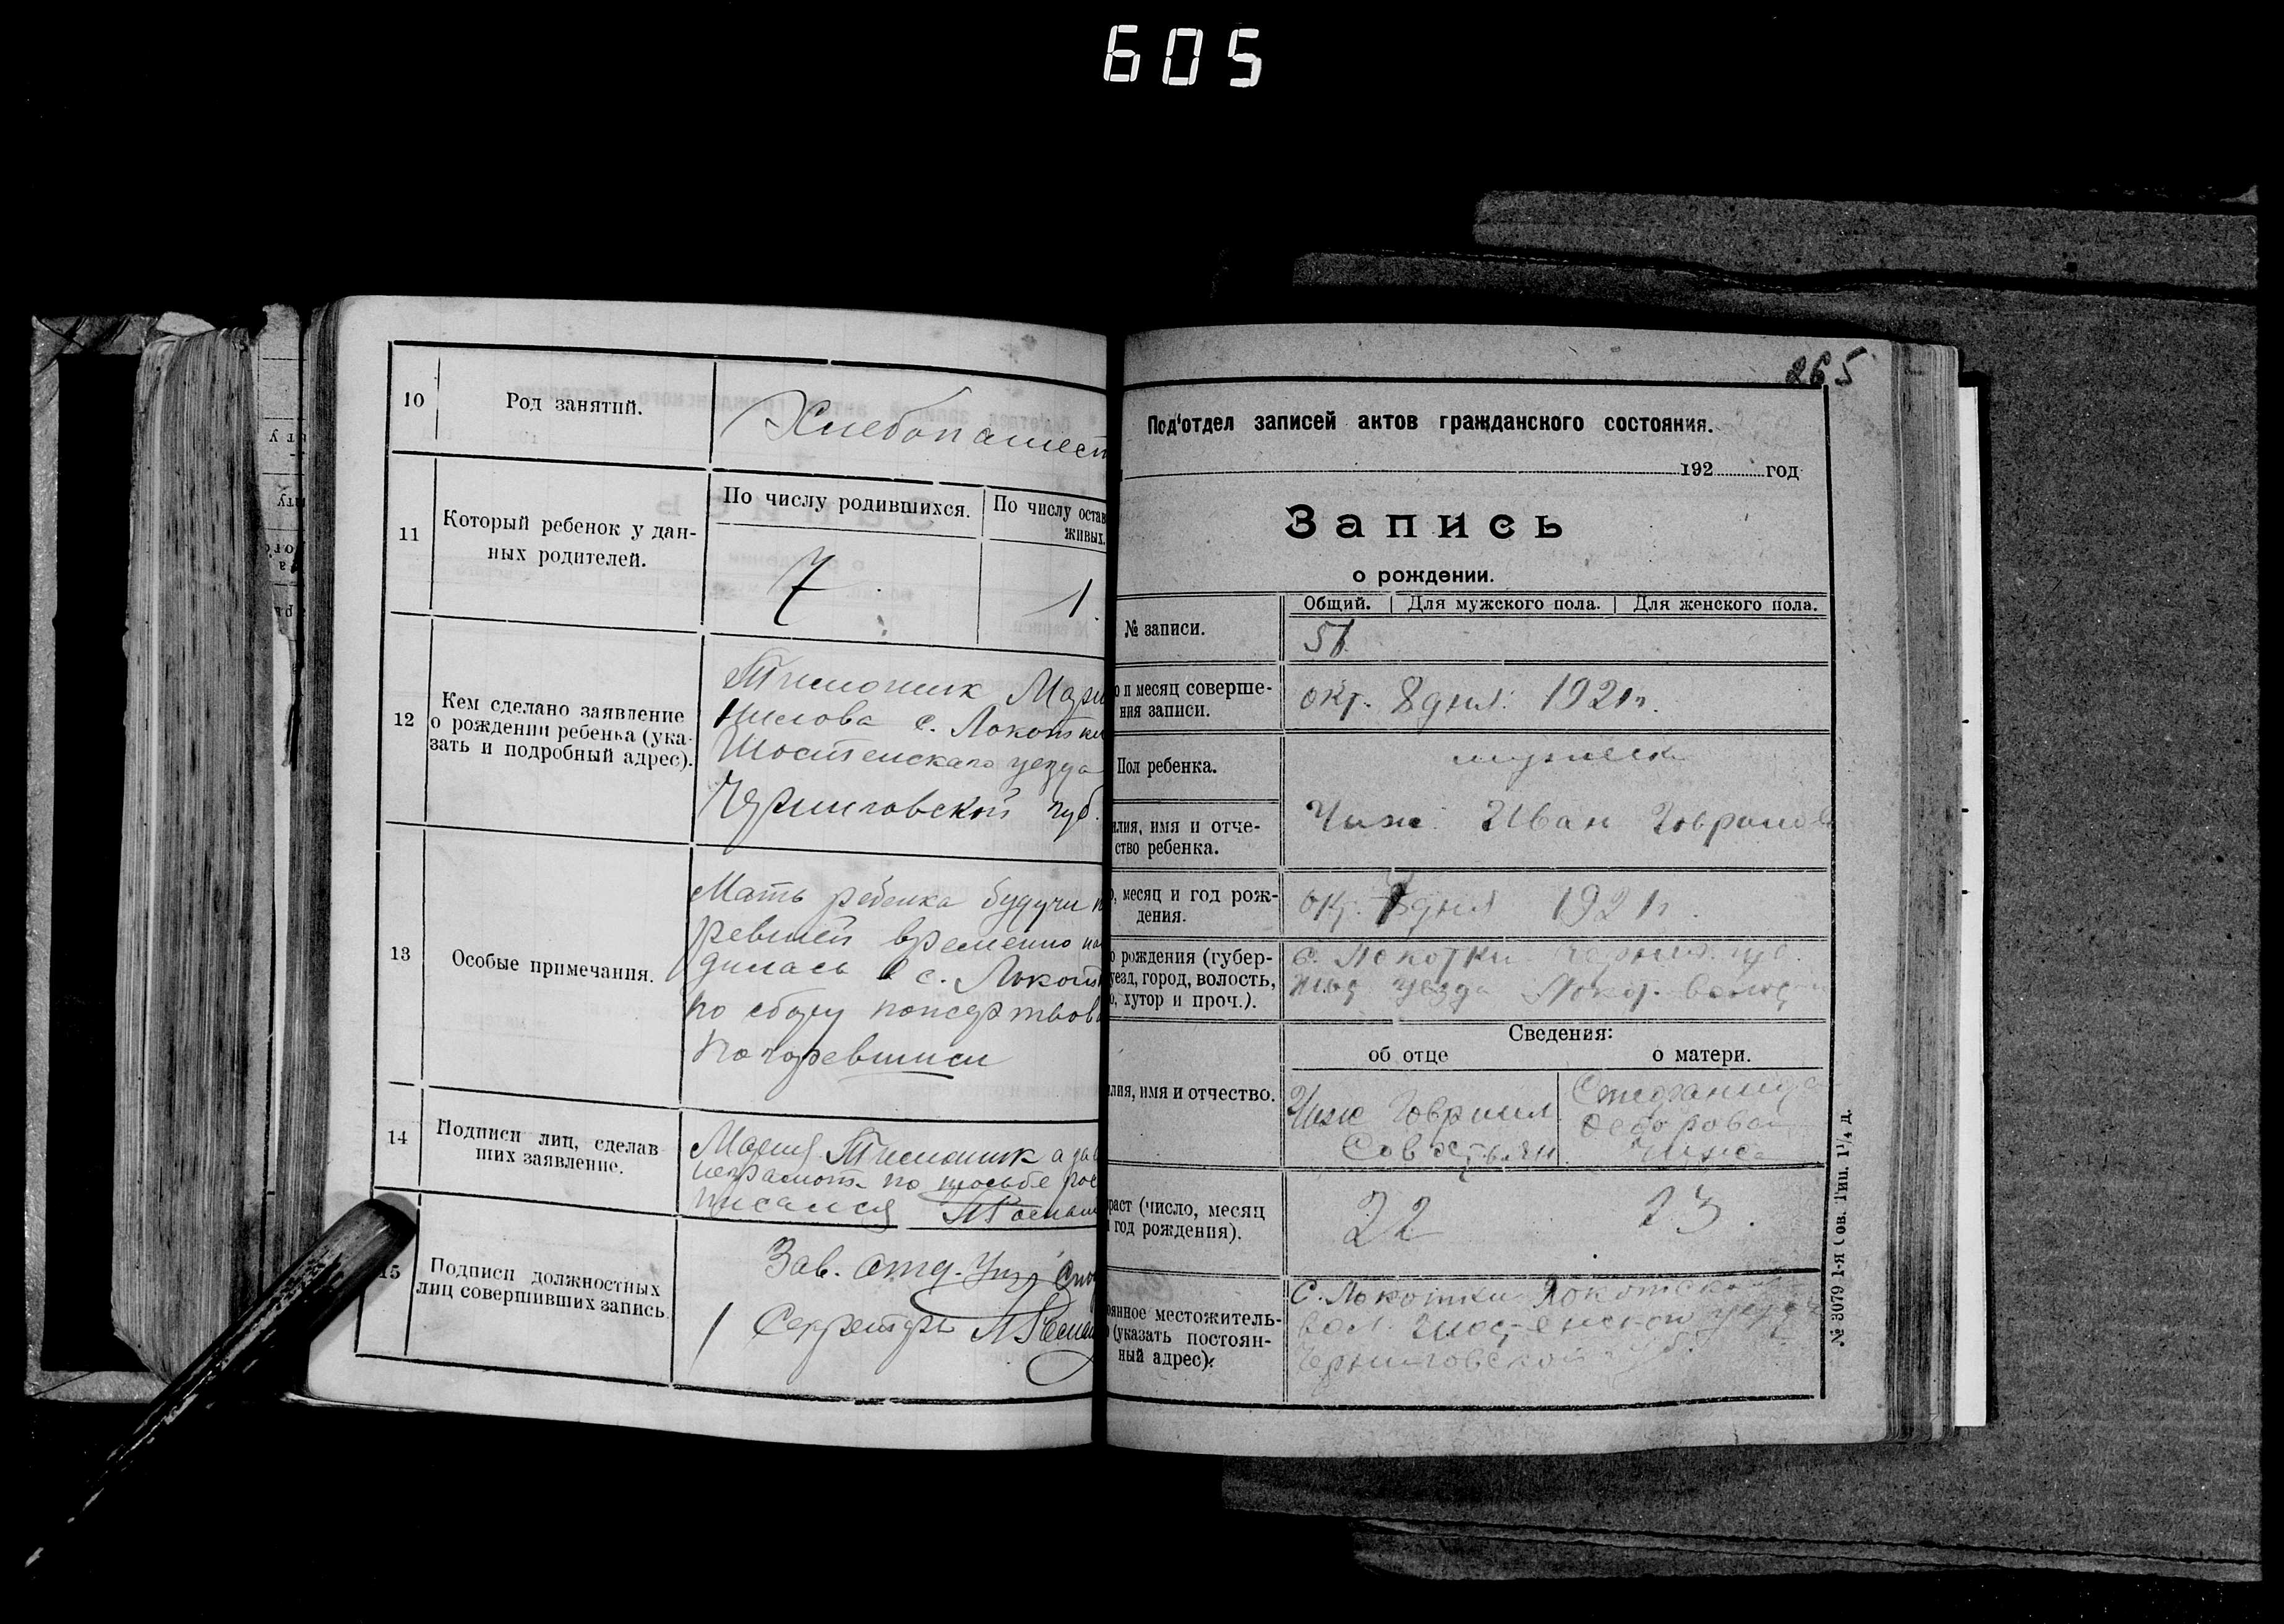 605
10
Род занятий.
Хлебопашест
11
Который ребенок у дан-
ных родителей.
По числу родившихся.
По числу остав
живых.
7
1.
12
Кем сделано заявление
о рождении ребенка (ука-
зать и подробный адрес).
Мари
с. Локотки
уезда
Черниговской губ.
13
Особые примечания.
Мать ребенка будучи
временно
с. Локот
по сбору пожертвов
14
Подписи лиц, сделав
ших заявление.
Мария
по просьбе рос
писался
15
Подписи должностных
лиц совершивших запись
Зав. отд.
Секретарь
265
Под'отдел записей актов гражданского состояния.
192 год
Запись
о рождении.
Общий. Для мужского пола. Для женского пола.
№ записи.
51
о и месяц соверше-
ния записи.
окт. 8 дня 1921 г.
Пол ребенка.
мужеск
илия, имя и отче-
ство ребенка.
Чиж Иван
о, месяц и год рож-
дения.
окт. дня 1921 г.
о рождения (губер-
уезд, город, волость,
о, хутор и проч.).
с. Локотки губ.
уезда Локот.
Сведения:
об отце
о матери.
илия, имя и отчество.
Чиж
раст (число, месяц
год рождения).
22
23.
оянное местожитель-
(указать постоян-
ный адрес):
С. Локотки Локотской
вол. уезда
Черниговской
№ 3079 1-я Сов. Тип. 1¹/₄ д.